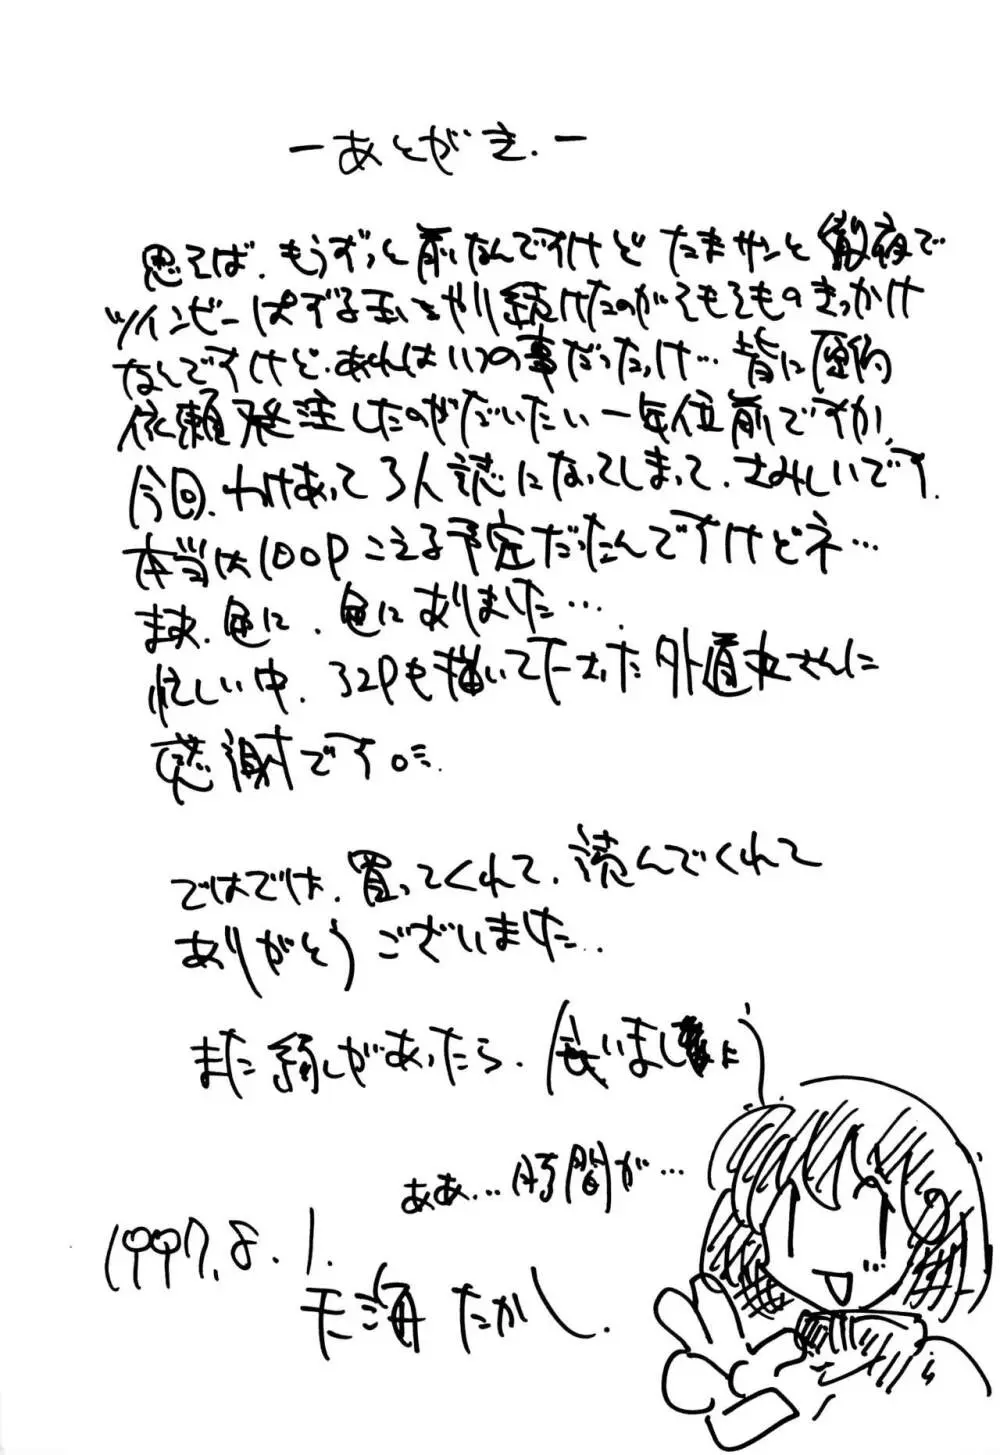 －あとがき．－
思えば、もうずっと前なんですけど たまサンと徹夜で
ツインビーぱずる玉をやり続けたのがそもそものきっかけ
なんですけど、あれはいつの事だったっけ… 皆に原稿
依頼発注したのがだいたい一年位前ですか、
今回、わけあって3人誌になってしまって、さみしいです．
本当は100Pこえる予定だったんですけどネ…
まあ、色々、色々ありました…．
忙しい中、32Pも描いて下さった外道丸さんに
感謝です。
ではでは、買ってくれて、読んでくれて
ありがとうございました．．
また縁があったら、会いましょう
ああ…時間が…
1997.8.1.
天海たかし．